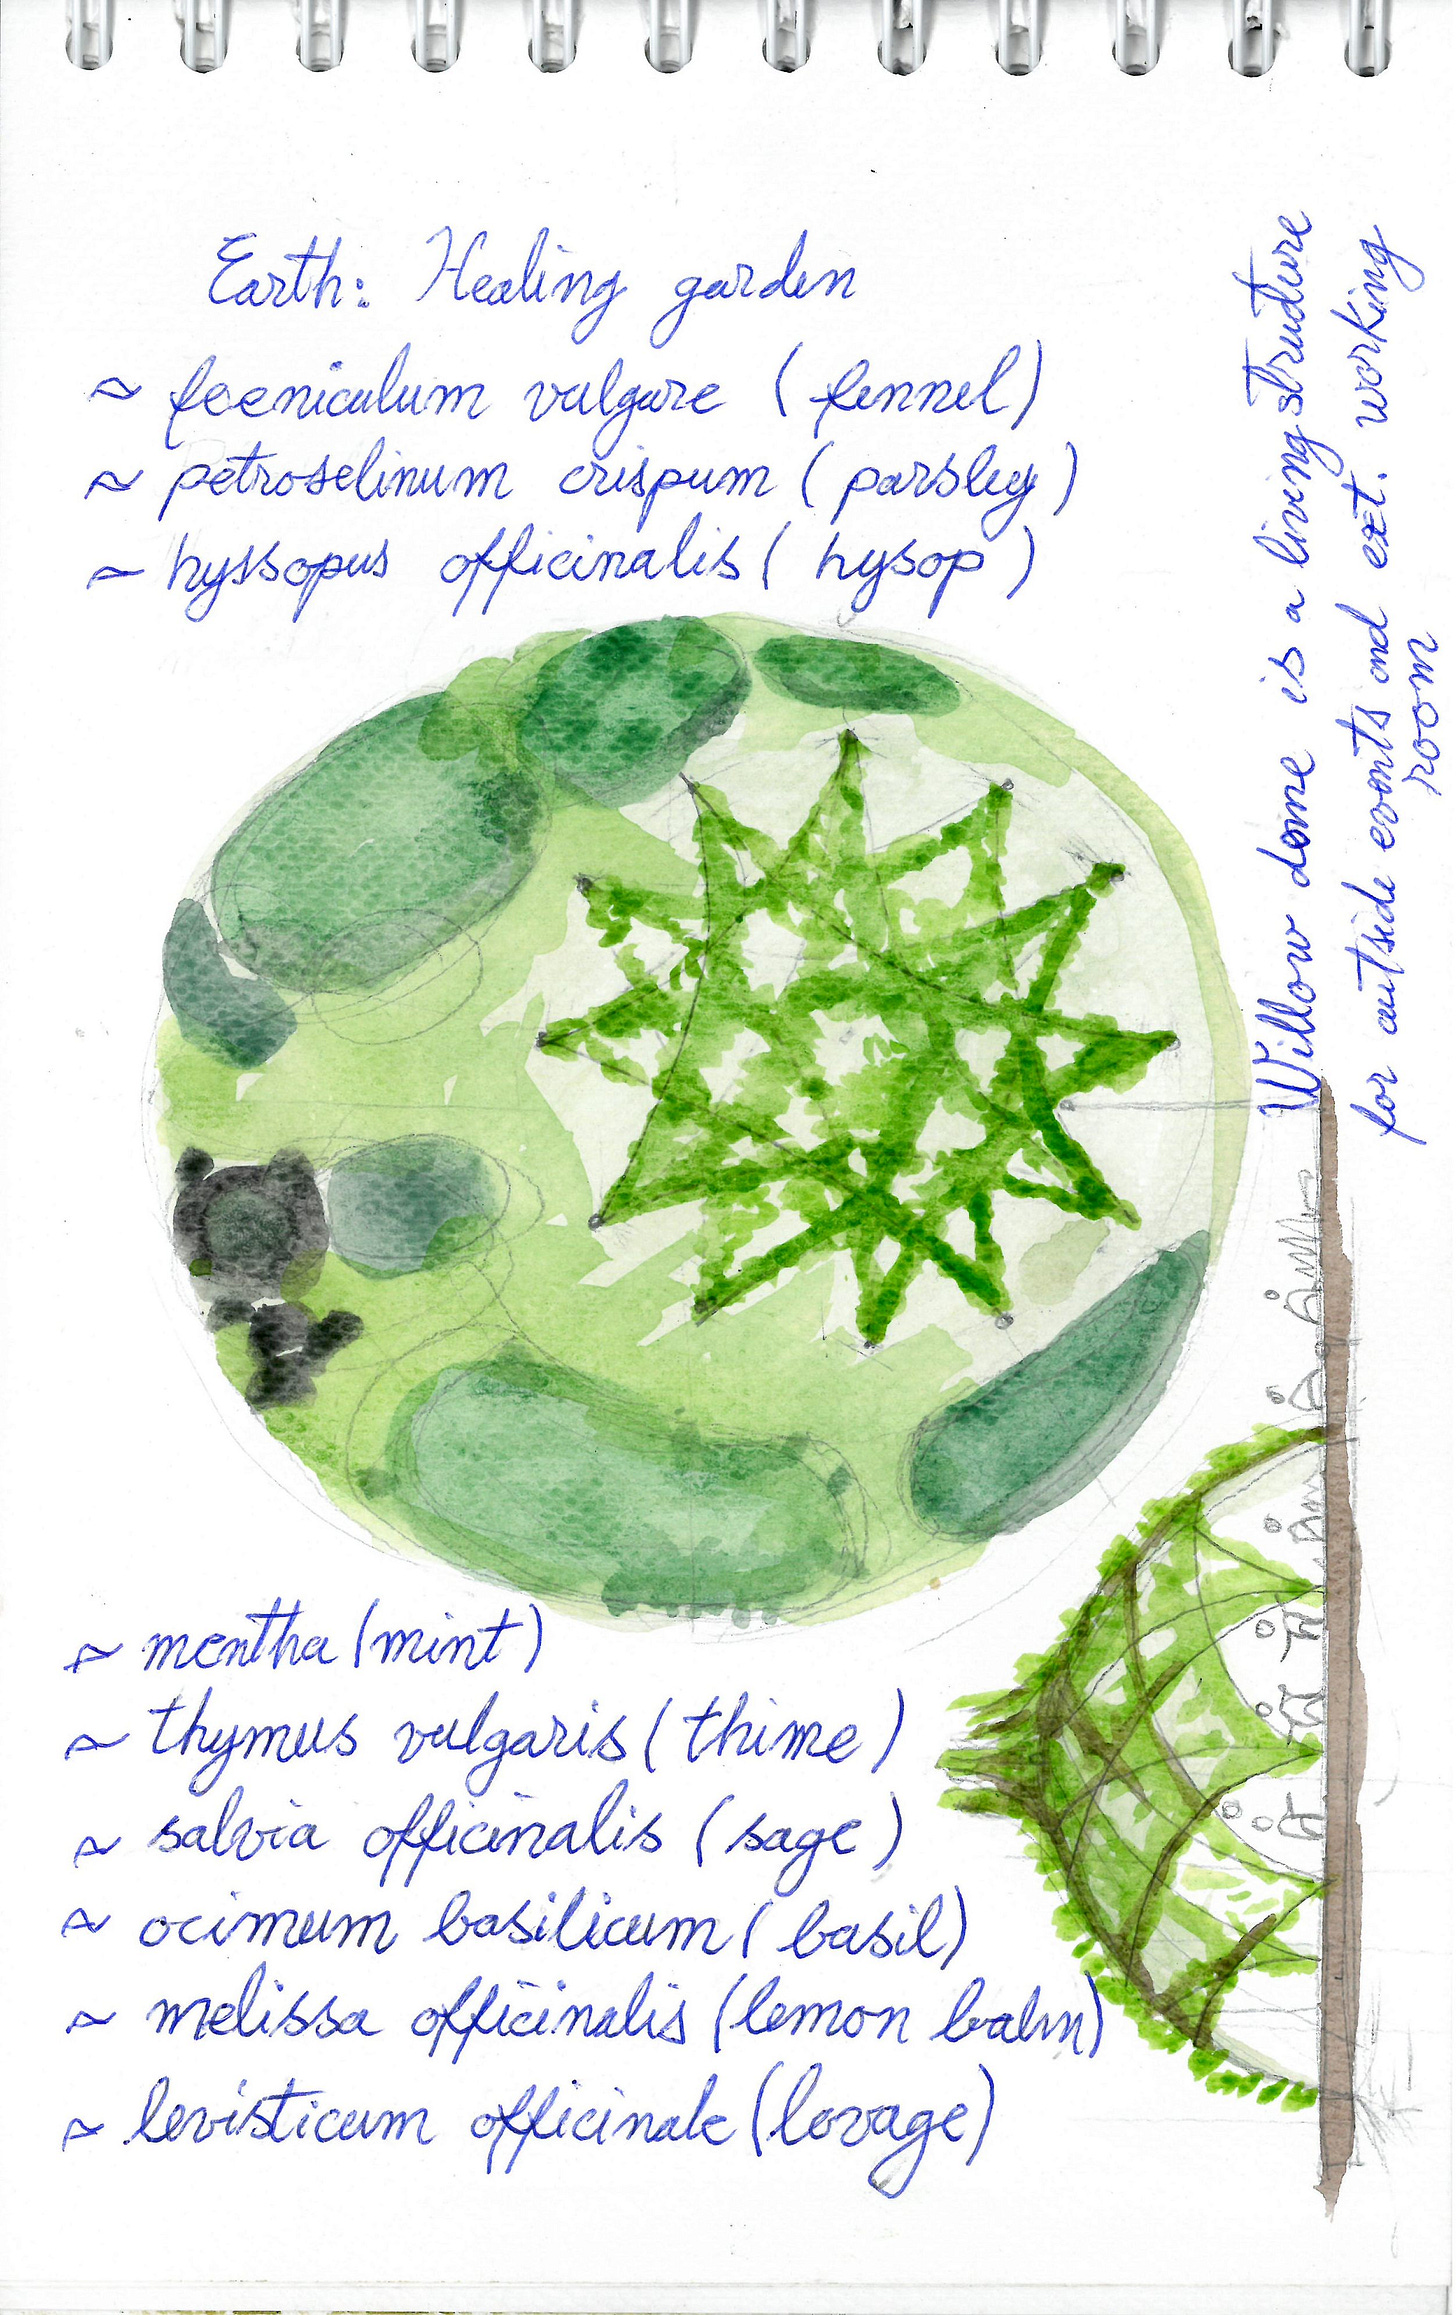 Earth: Healing garden
~ foeniculum vulgare (fennel)
~ petroselinum crispum (parsley)
~ hyssopus officinalis (hysop)
Willow dome is a living structure
for outside events and ext. working
room
~ mentha (mint)
~ thymus vulgaris (thime)
~ salvia officinalis (sage)
~ ocimum basilicum (basil)
~ melissa officinalis (lemon balm)
~ levisticum officinale (lovage)